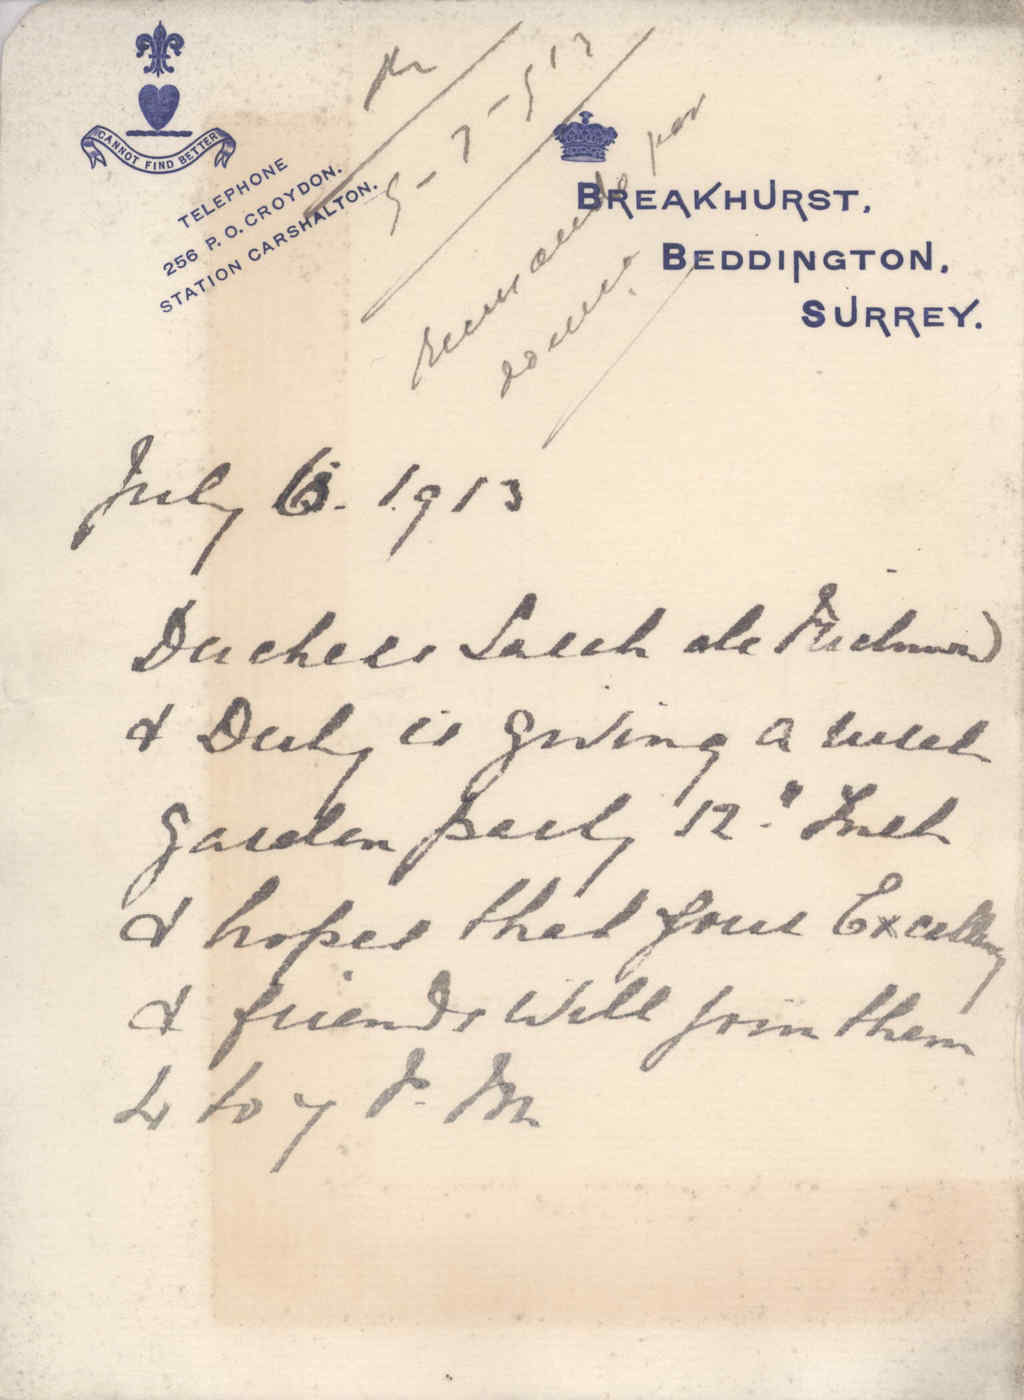 CANNOT FIND BETTER
TELEPHONE
256 P. O. CROYDON.
STATION CARSHALTON.
BREAKHURST,
BEDDINGTON,
SURREY.
5-7-913
July 6. 1913
Duchess Sarah de Richmond
& Derby is giving a
garden party 12." Inst
& hopes that your Excellency
& friends will join them
4 to 7 P. M